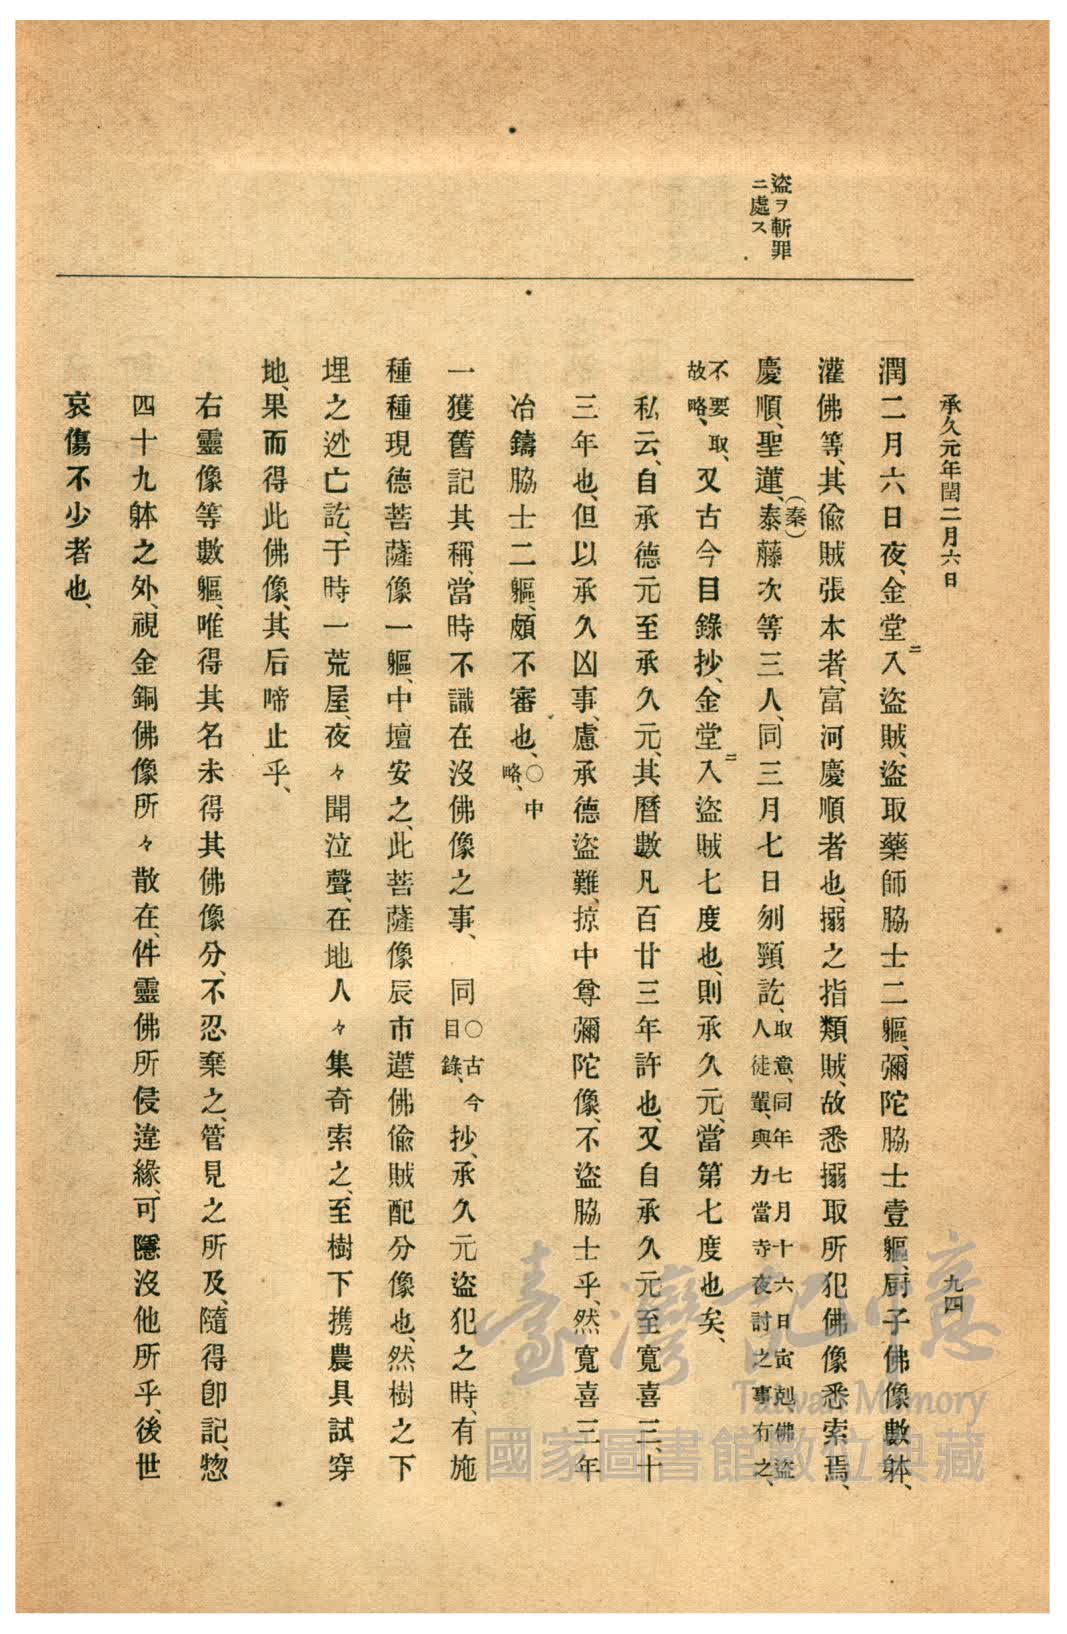 承久元年閏二月六日
九四
盜ヲ斬罪
ニ處ス
潤二月六日夜、金堂ニ入盜賊、盜取藥師脇士二軀、彌陀脇士壹軀、厨子佛像數躰、
灌佛等、其偸賊張本者、富河慶順者也、搦之指類賊、故悉搦取所犯佛像悉索焉、
慶順、聖蓮、泰(秦)藤次等三人、同三月七日刎頸訖、取意、同年七月十六日寅剋佛盜
人徒輩、與力當寺夜討之事有之、
不要取、
故略、又古今目錄抄、金堂ニ入盜賊七度也、則承久元、當第七度也矣、
私云、自承德元至承久元、其曆數凡百廿三年許也、又自承久元至寬喜三、十
三年也、但以承久凶事、慮承德盜難、掠中尊彌陀像、不盜脇士乎、然寬喜三年
冶鑄脇士二軀、頗不審也、○中
略、
一獲舊記其稱、當時不識在沒佛像之事、　同○古今
目錄、抄、承久元盜犯之時、有施
種種現德菩薩像一軀、中壇安之、此菩薩像辰市蓮佛偸賊配分像也、然樹之下
埋之迯亡訖、于時一荒屋、夜々聞泣聲、在地人々集奇索之、至樹下携農具試穿
地、果而得此佛像、其后啼止乎、
右靈像等數軀、唯得其名未得其佛像分、不忍棄之、管見之所及、隨得卽記、惣
四十九躰之外、視金銅佛像所々散在、件靈佛所侵違緣、可隱沒他所乎、後世
哀傷不少者也、
臺灣記憶
Taiwan Memory
國家圖書館數位典藏